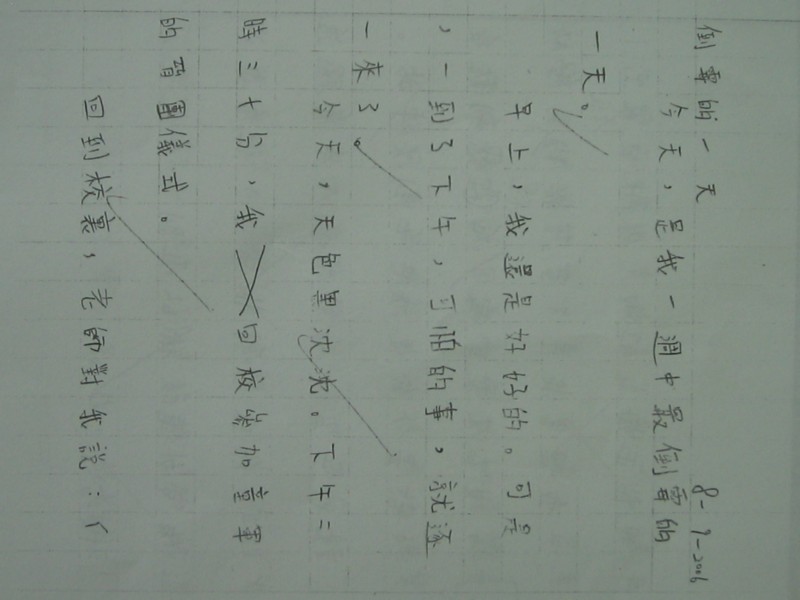 倒霉的一天
今天，是我一週中最倒霉的
一天。
早上，我還是好好的。可是
，一到了下午，可怕的事，就逐
一來了。
今天，天色黑沈沈。下午二
時三十分，我回校參加童軍
的晉團儀式。
回到校裏，老師對我說：「